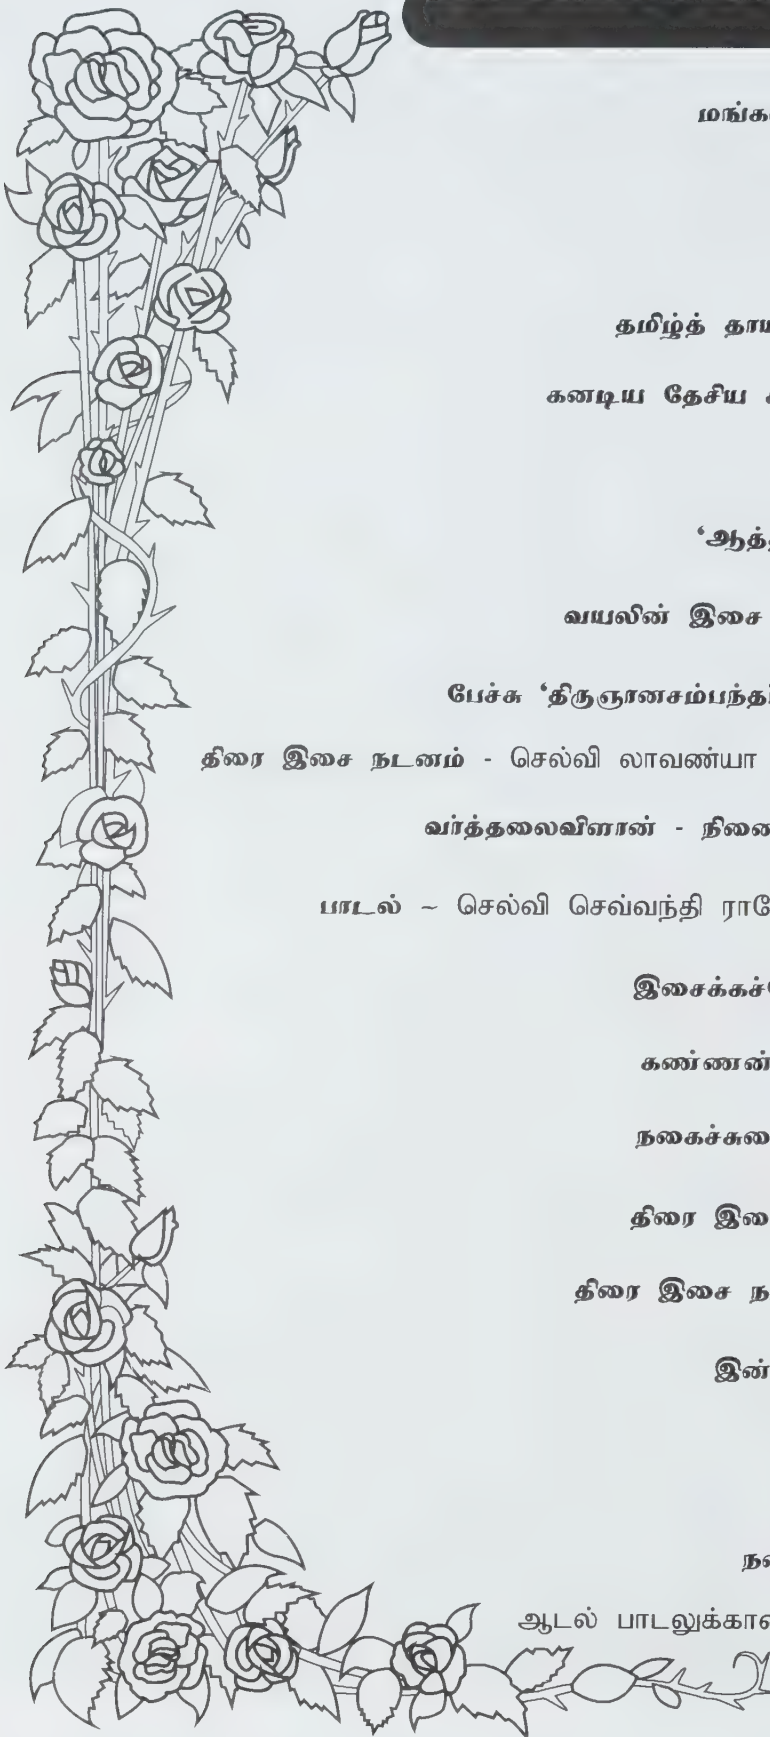 மங்க
தமிழ்த் தாய
கனடிய தேசிய
'ஆத்
வயலின் இசை
பேச்சு 'திருஞானசம்பந்த
திரை இசை நடனம் - செல்வி லாவண்யா
வர்த்தலைவிளான் - நினை
பாடல் ~ செல்வி செவ்வந்தி ராே
இசைக்கச்
கண்ணன்
நகைச்சுவை
திரை இசை
திரை இசை ந
இன்
நன
ஆடல் பாடலுக்கான